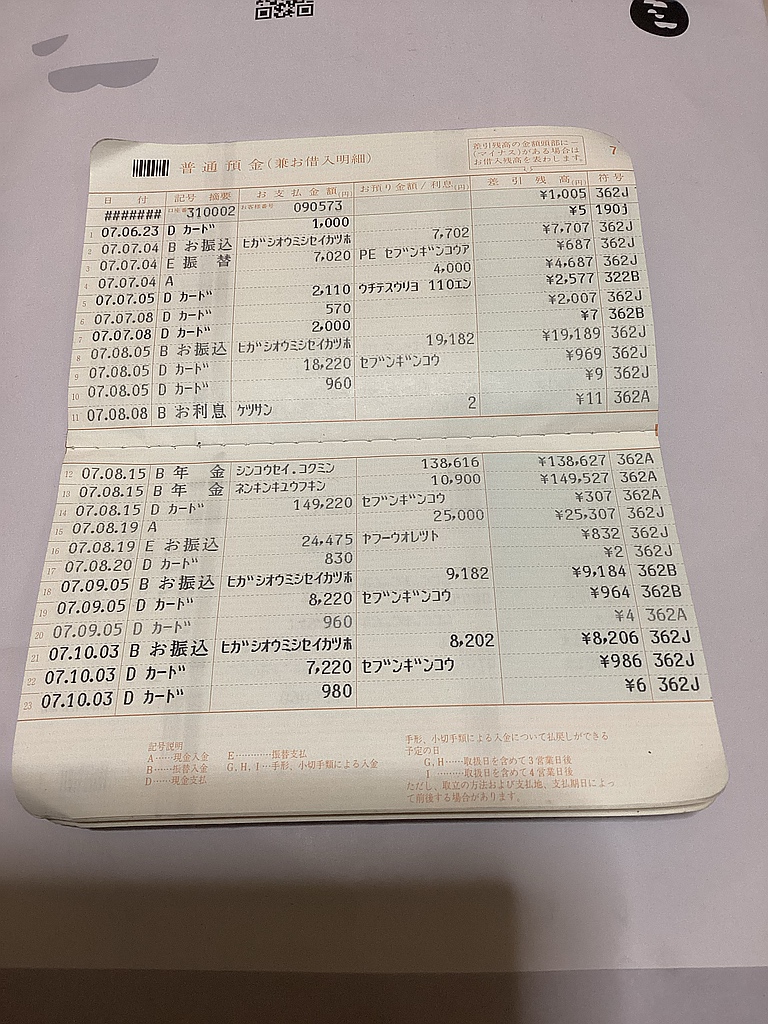 普通預金(兼お借入明細)
差引残高の金額頭部に−
(マイナス)がある場合は
お借入残高を表わします。
7
日 付 記号 摘要 お支払金額(円) お預り金額/利息(円) 差引残高(円) 符号
####### 310002 090573 ¥1,005 362J
1 07.06.23 D カード 1,000 ¥5 190j
2 07.07.04 B お振込 ヒガシオウミシセイカツホ 7,702 ¥7,707 362J
3 07.07.04 E 振 替 7,020 PE セブンギンコウア ¥687 362J
4 07.07.04 A 4,000 ¥4,687 362J
5 07.07.05 D カード 2,110 ウチテスウリヨ 110エン ¥2,577 322B
6 07.07.08 D カード 570 ¥2,007 362J
7 07.07.08 D カード 2,000 ¥7 362B
8 07.08.05 B お振込 ヒガシオウミシセイカツホ 19,182 ¥19,189 362J
9 07.08.05 D カード 18,220 セブンギンコウ ¥969 362J
10 07.08.05 D カード 960 ¥9 362J
11 07.08.08 B お利息 ケツサン 2 ¥11 362A
12 07.08.15 B 年 金 シンコウセイ.コクミン 138,616 ¥138,627 362A
13 07.08.15 B 年 金 ネンキンキユウフキン 10,900 ¥149,527 362A
14 07.08.15 D カード 149,220 セブンギンコウ ¥307 362A
15 07.08.19 A 25,000 ¥25,307 362J
16 07.08.19 E お振込 24,475 ヤフーウオレツト ¥832 362J
17 07.08.20 D カード 830 ¥2 362J
18 07.09.05 B お振込 ヒガシオウミシセイカツホ 9,182 ¥9,184 362B
19 07.09.05 D カード 8,220 セブンギンコウ ¥964 362B
20 07.09.05 D カード 960 ¥4 362A
21 07.10.03 B お振込 ヒガシオウミシセイカツホ 8,202 ¥8,206 362J
22 07.10.03 D カード 7,220 セブンギンコウ ¥986 362J
23 07.10.03 D カード 980 ¥6 362J
記号説明
A……現金入金 E…………振替支払
B……振替入金 G, H, I…手形、小切手類による入金
D……現金支払
手形、小切手類による入金について払戻しができる
予定の日
G, H……取扱日を含めて3営業日後
I ……取扱日を含めて4営業日後
ただし、取立の方法および支払地、支払期日によっ
て前後する場合があります。